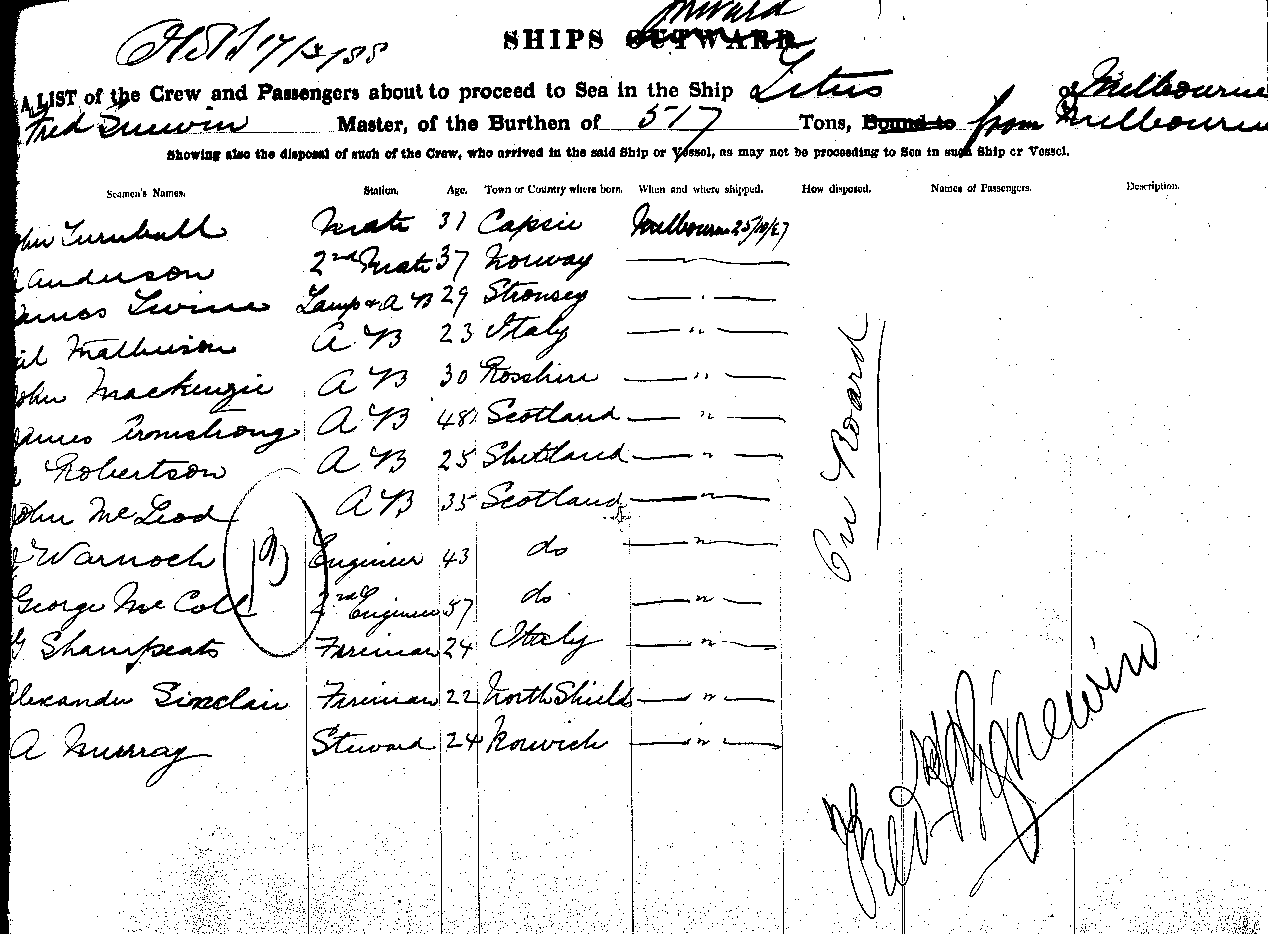 Inward
SHIPS OUTWARD
17/3/88
A LIST of the Crew and Passengers about to proceed to Sea in the Ship of Melbourne
Fred Master, of the Burthen of 517 Tons, Bound to from Melbourne
Showing also the disposal of such of the Crew, who arrived in the said Ship or Vessel, as may not be proceeding to Sea in such Ship or Vessel.
Seamen's Names. Station. Age. Town or Country where born. When and where shipped. How disposed. Names of Passengers. Description.
John Turnbull Mate 31 Melbourne
Anderson 2nd Mate 37 Norway
James Lamp & A B 29 Stronsey — " —
A B 23 Italy — " —
John Mackenzie A B 30 Rosshire — " —
James Armstrong A B 48 Scotland — " —
Robertson A B 25 Shetland — " —
John McLeod A B 35 Scotland — " —
Warnoch Engineer 43 do — " —
George McColl 2nd Engineer 57 do — " —
G Fireman 24 Italy — " —
Alexander Sinclair Fireman 22 North Shields — " —
A Murray Steward 24 Norwich — " —
B
On Board